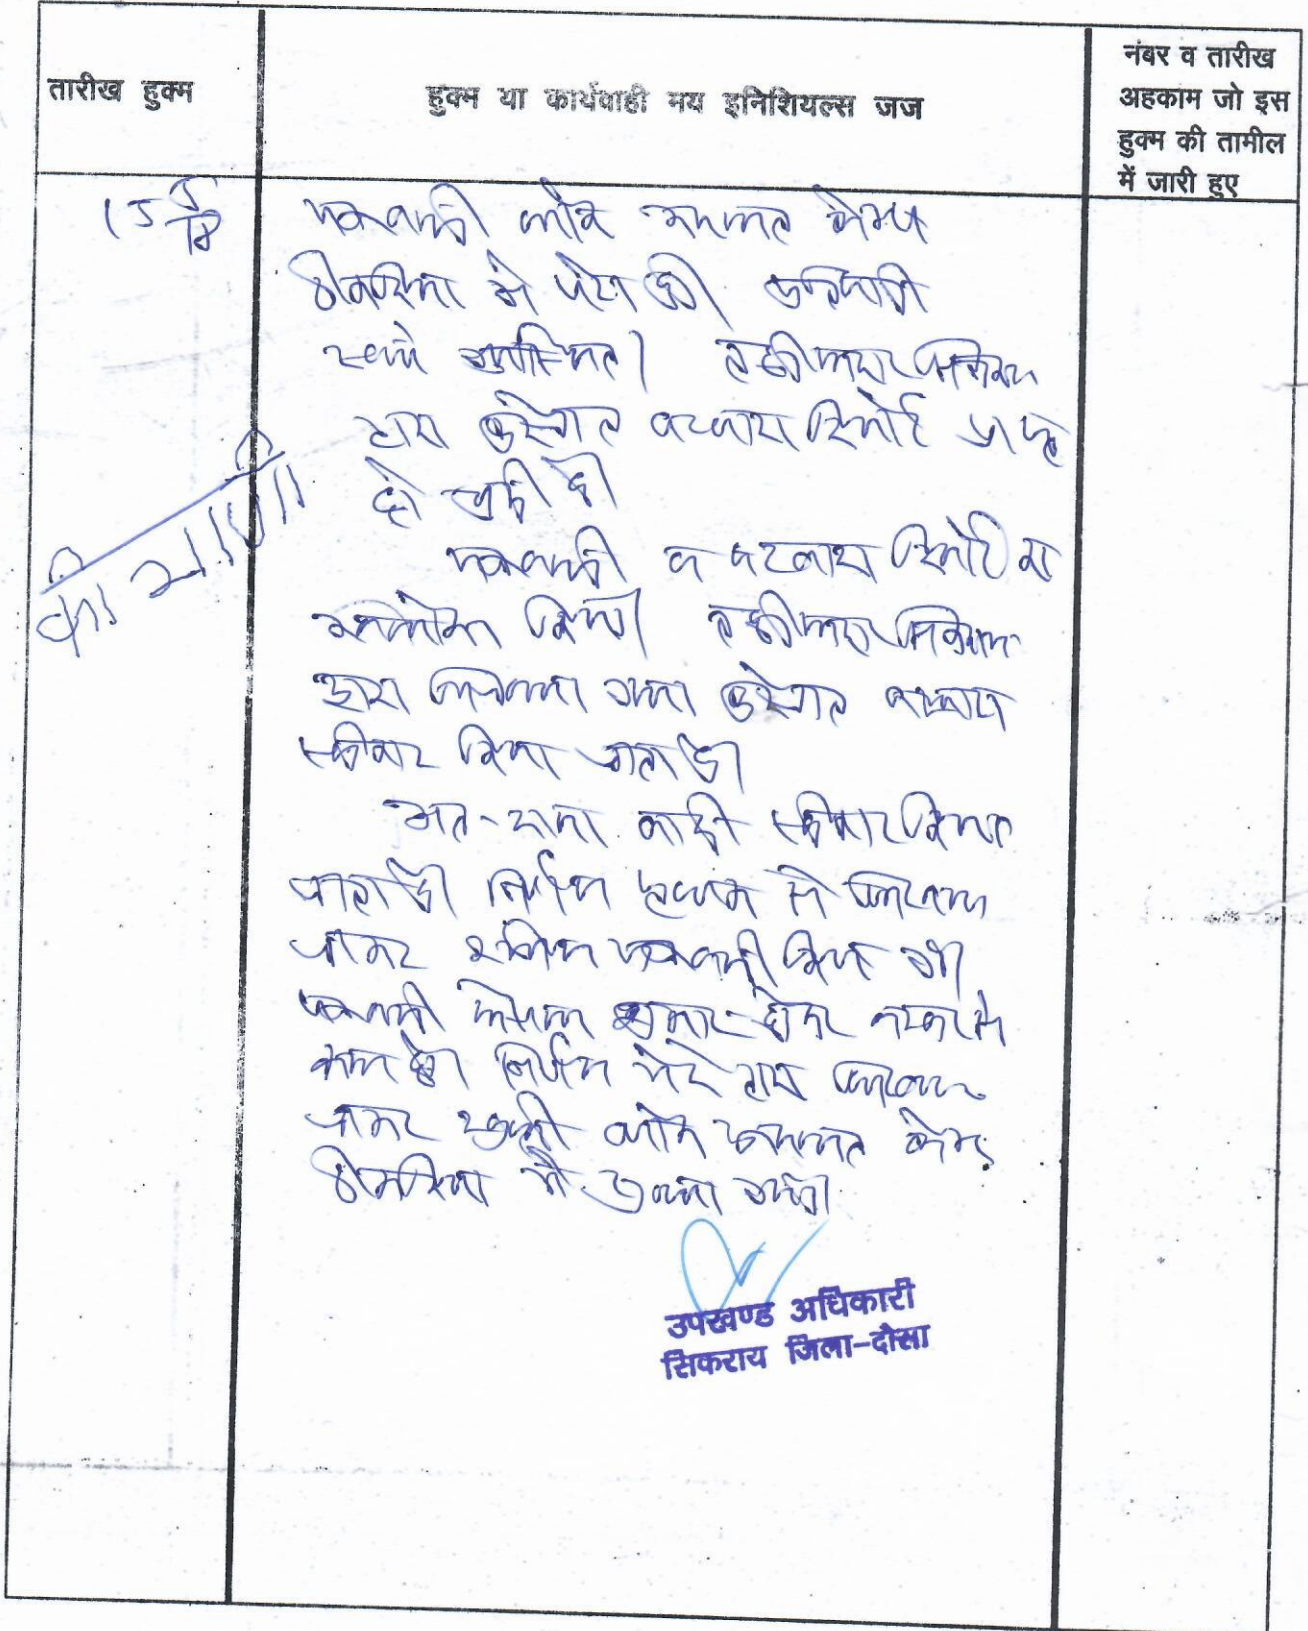 तारीख हुक्म
हुक्म या कार्यवाही मय इनिशियल्स जज
नंबर व तारीख
अहकाम जो इस
हुक्म की तामील
में जारी हुए
15 5/18
पत्रावली लोक अदालत केम्प
में पेश हुई
उपस्थित। तहसीलदार सिकराय
द्वारा कुरेजात बटवारा रिपोर्ट प्राप्त
हो चुकी है।
पत्रावली व बटवारा रिपोर्ट का
अवलोकन किया। तहसीलदार सिकराय
द्वारा भिजवाया गया कुरेजात बटवारा
स्वीकार किया जाता है।
अतः दावा वादी स्वीकार किया
जाता है। निर्णय पृथक से लिखाया
जाकर शामिल पत्रावली किया गया।
पत्रावली फैसल शुमार होकर नम्बर से
कम हो। निर्णय मेरे द्वारा लिखाया
जाकर लोक अदालत केम्प
में सुनाया गया।
उपखण्ड अधिकारी
सिकराय जिला-दौसा